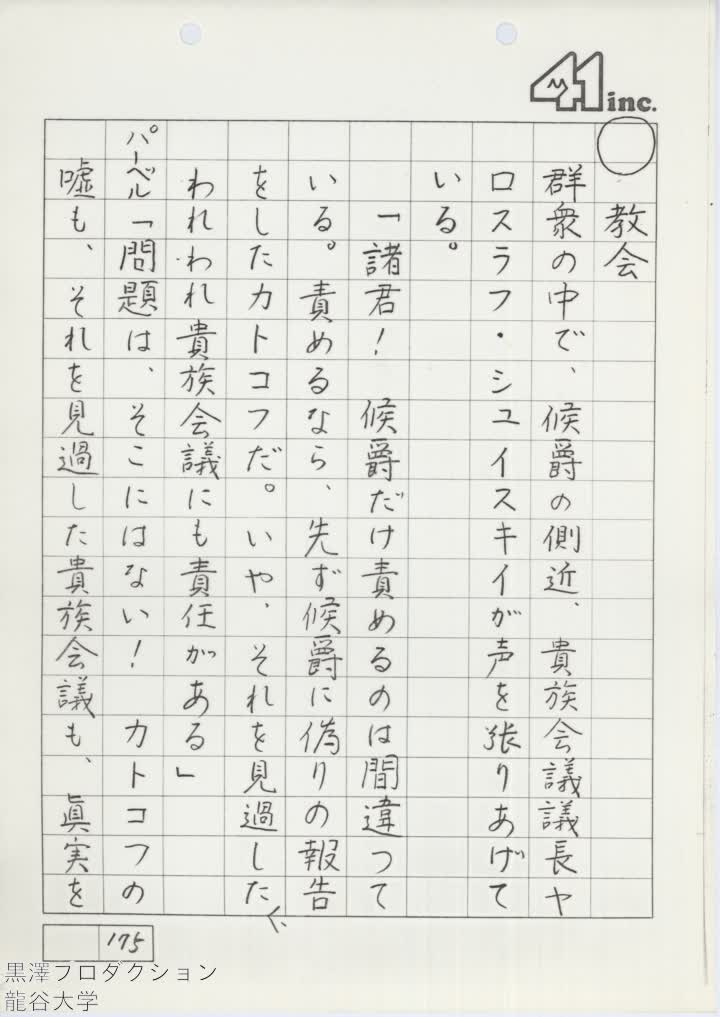 41 inc.
○ 教会
群衆の中で、候爵の側近、貴族会議議長ヤ
ロスラフ・シュイスキイが声を張りあげて
いる。
「諸君！　候爵だけ責めるのは間違つて
いる。　責めるなら、先ず候爵に偽りの報告
をしたカトコフだ。いや、それを見過した
われわれ貴族会議にも責任がある」
パーベル「問題は、そこにはない！　カトコフの
嘘も、それを見過した貴族会議も、眞実を
175
黒澤プロダクション
龍谷大学